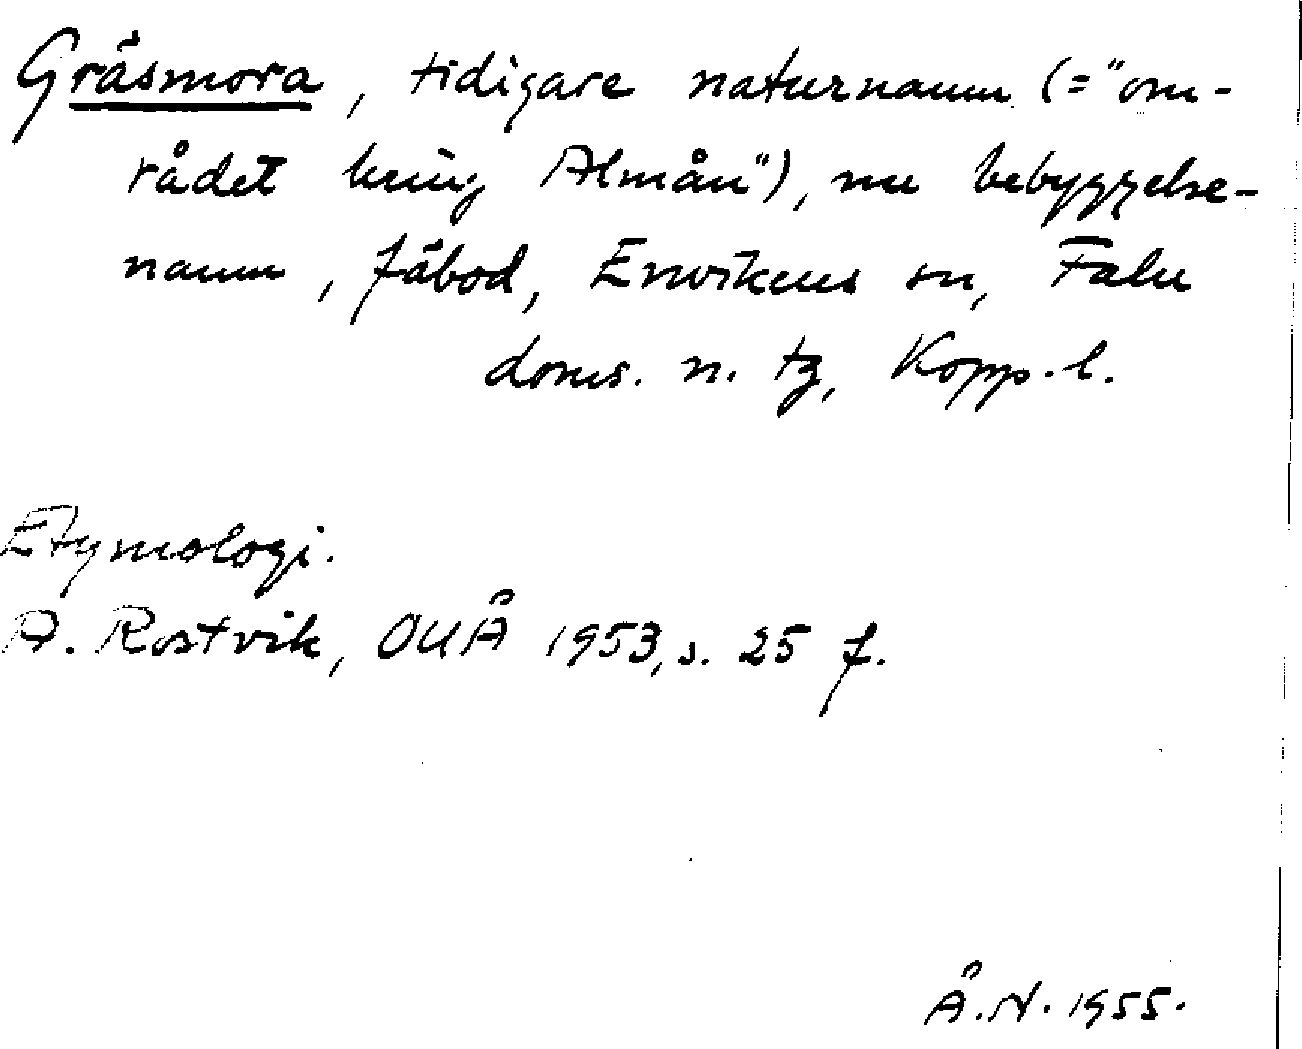 Gräsmora, tidigare naturnamn (="om-
rådet kring Almån"), nu bebyggelse-
namn, fäbod, Envikens sn, Falu
doms. n. tg, Kopp. l.
Etymologi.
A. Rostvik, OUÅ 1953, s. 25 f.
Å.N. 1955.